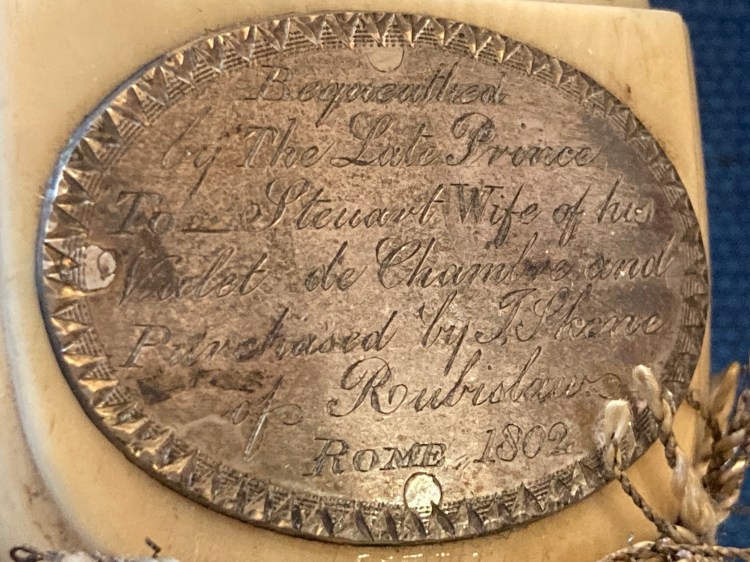 Bequeathed
by The Late Prince
To — Steuart Wife of his
Valet de Chambre and
Purchased by J. Skene
of Rubislaw
ROME, 1802